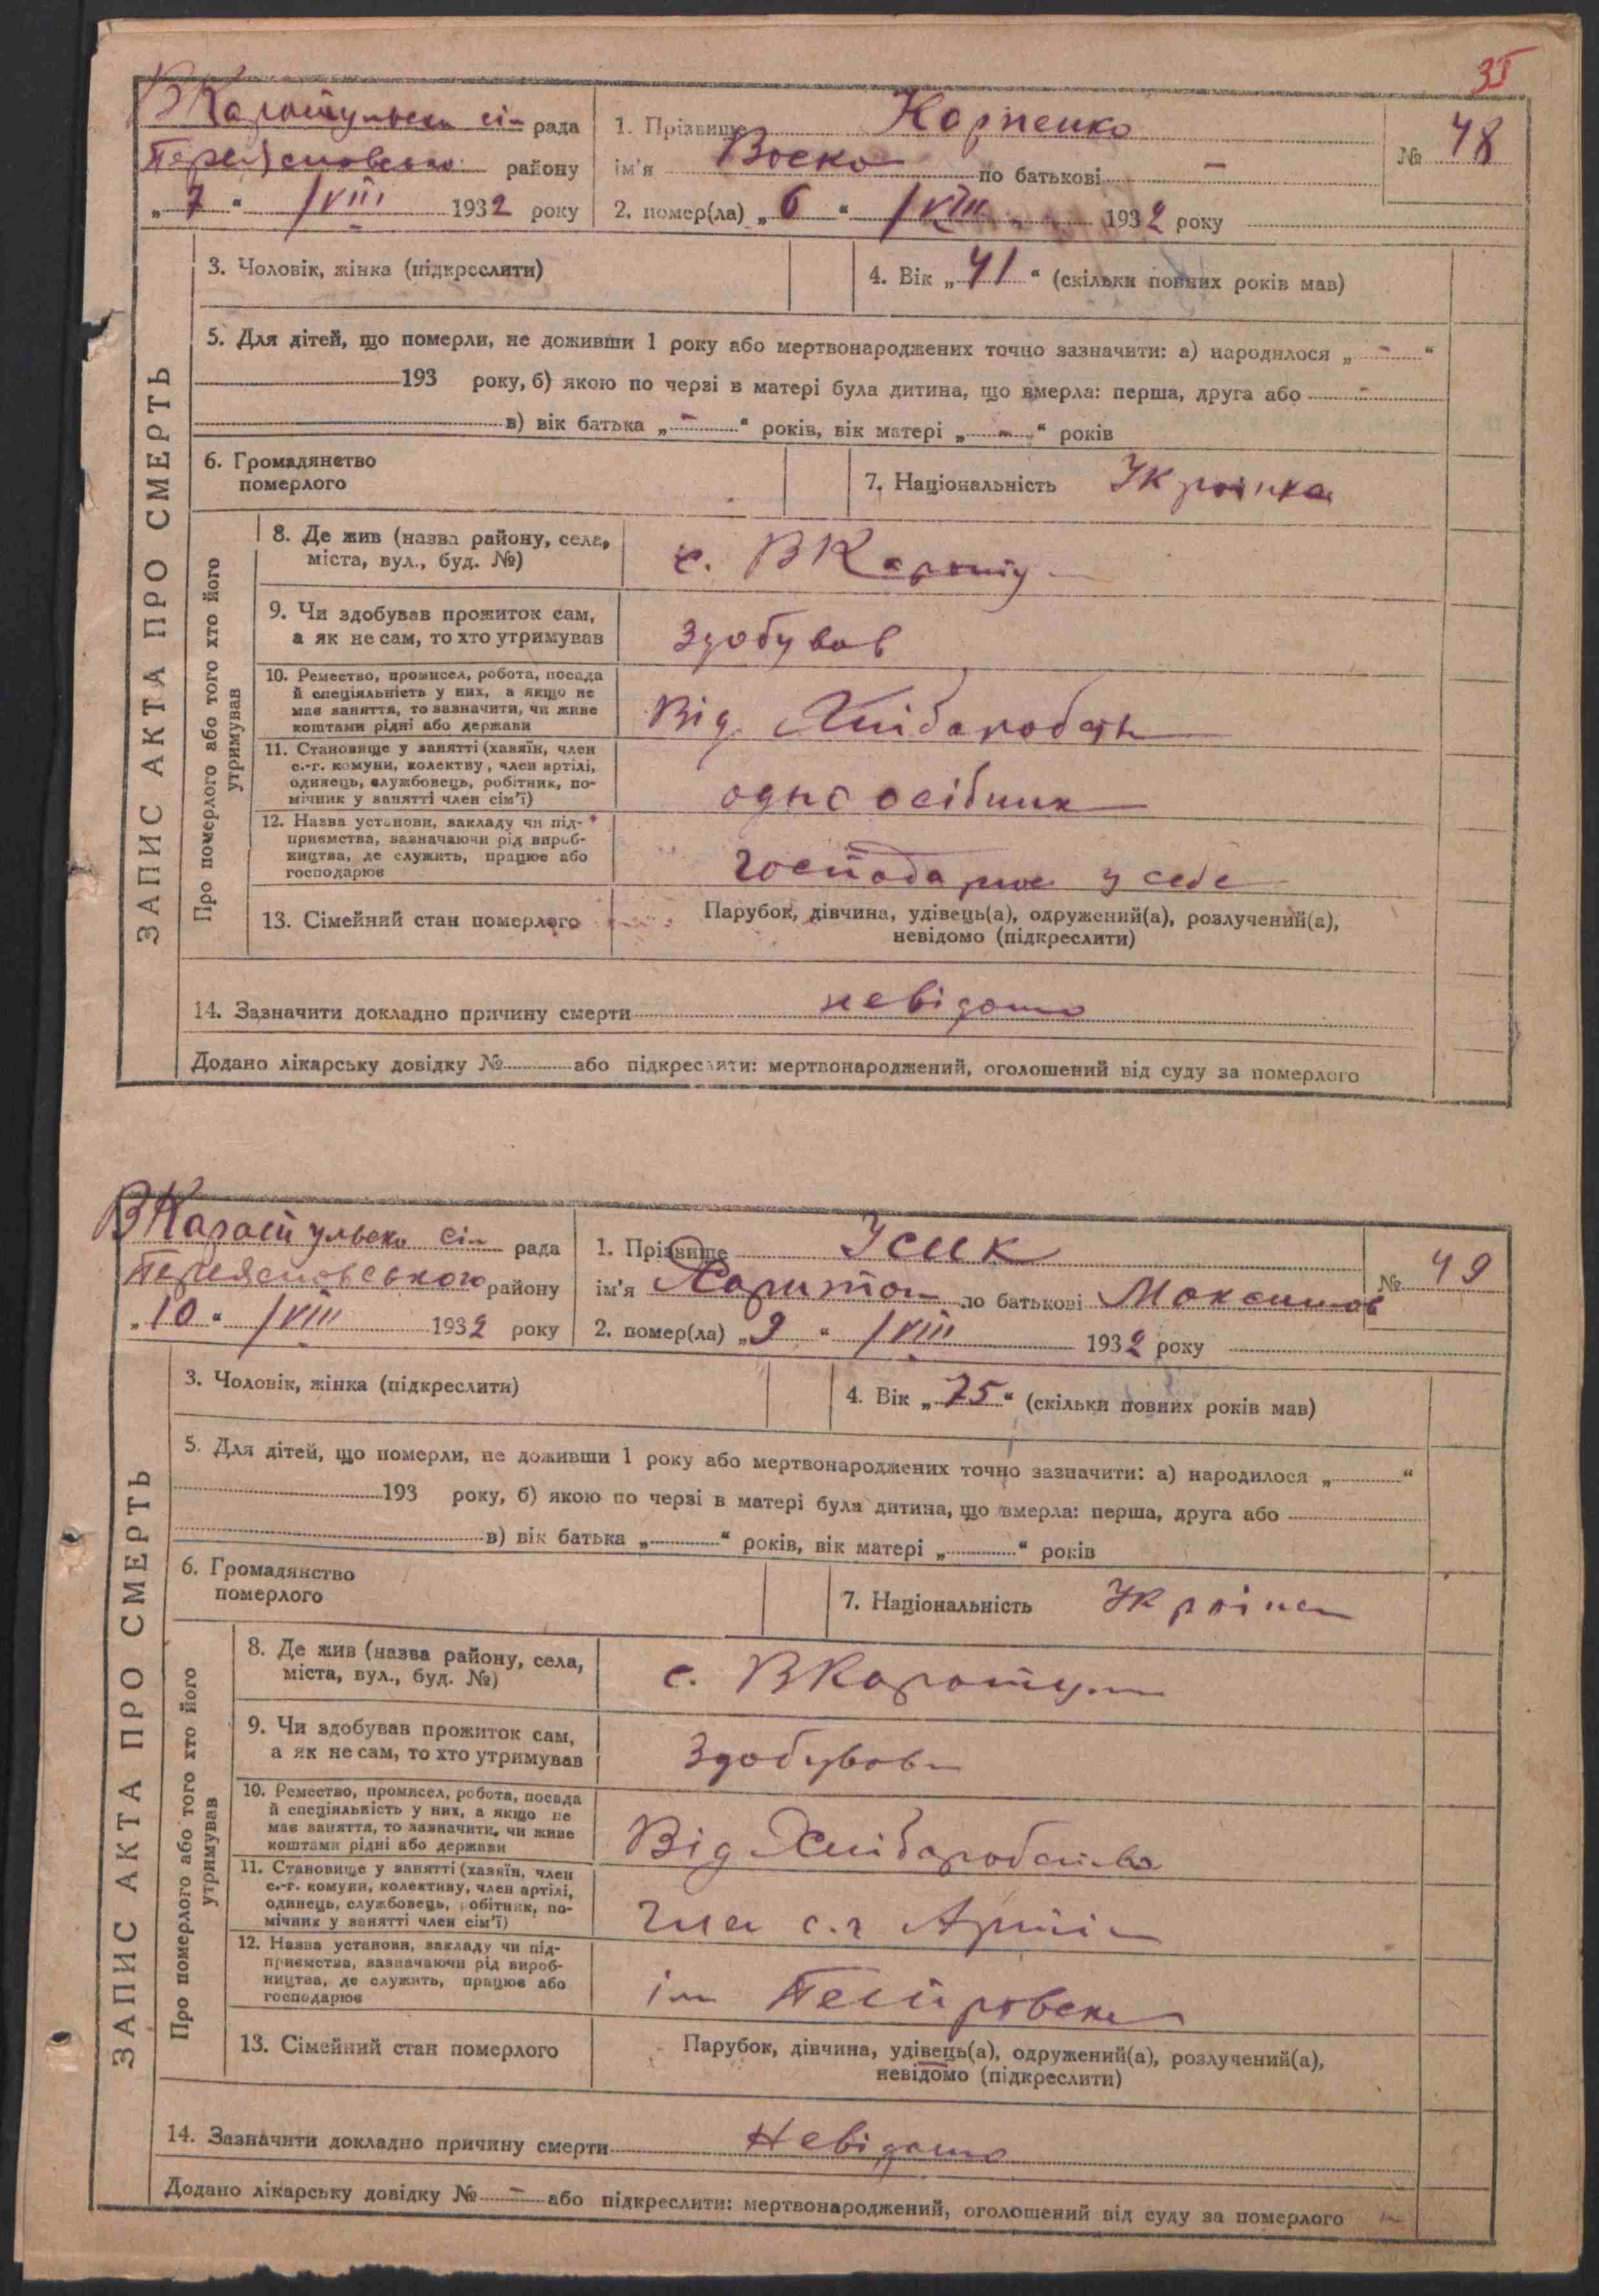 35
ВКаратульска сіл рада
Переяславсько району
„ 7 “ /VIII 1932 року
1. Прізвище Карпенко
ім'я Васка по батькові –
№ 48
2. помер(ла) „ 6 “ /VIII 1932 року
3. Чоловік, жінка (підкреслити)
4. Вік „ 41 “ (скільки повних років мав)
5. Для дітей, що померли, не доживши 1 року або мертвонароджених точно зазначити: а) народилося „ – “
193 року, б) якою по черзі в матері була дитина, що вмерла: перша, друга або –
в) вік батька „ – “ років, вік матері „ – “ років
6. Громадянство
померлого
7. Національність Українка
ЗАПИС АКТА ПРО СМЕРТЬ
Про померлого або того хто його
утримував
8. Де жив (назва району, села,
міста, вул., буд. №)
с. ВКарату
9. Чи здобував прожиток сам,
а як не сам, то хто утримував
Здобував
10. Ремество, промисел, робота, посада
й спеціяльність у них, а якщо не
має заняття, то зазначити, чи живе
коштами рідні або держави
Від Хлібаробст
11. Становище у занятті (хазяїн, член
с.-г. комуни, колективу, член артілі,
одинець, службовець, робітник, по-
мічник у занятті член сім'ї)
одноосібник
12. Назва установи, закладу чи під-
приємства, зазначаючи рід вироб-
ництва, де служить, працює або
господарює
господарює у себе
13. Сімейний стан померлого
Парубок, дівчина, удівець(а), одружений(а), розлучений(а),
невідомо (підкреслити)
14. Зазначити докладно причину смерти невідомо
Додано лікарську довідку № або підкреслити: мертвонароджений, оголошений від суду за померлого
ВКаратульска сіл рада
Переяславського району
„ 10 “ /VIII 1932 року
1. Прізвище Усик
ім'я Харитон по батькові Максимов
№ 49
2. помер(ла) „ 9 “ /VIII 1932 року
3. Чоловік, жінка (підкреслити)
4. Вік „ 75 “ (скільки повних років мав)
5. Для дітей, що померли, не доживши 1 року або мертвонароджених точно зазначити: а) народилося „ “
193 року, б) якою по черзі в матері була дитина, що вмерла: перша, друга або
в) вік батька „ “ років, вік матері „ “ років
6. Громадянство
померлого
7. Національність Україне
ЗАПИС АКТА ПРО СМЕРТЬ
Про померлого або того хто його
утримував
8. Де жив (назва району, села,
міста, вул., буд. №)
с. ВКаратул
9. Чи здобував прожиток сам,
а як не сам, то хто утримував
Здобував
10. Ремество, промисел, робота, посада
й спеціяльність у них, а якщо не
має заняття, то зазначити, чи живе
коштами рідні або держави
Від Хлібаробства
11. Становище у занятті (хазяїн, член
с.-г. комуни, колективу, член артілі,
одинець, службовець, робітник, по-
мічник у занятті член сім'ї)
член с.г Артіл
12. Назва установи, закладу чи під-
приємства, зазначаючи рід вироб-
ництва, де служить, працює або
господарює
ім Петровско
13. Сімейний стан померлого
Парубок, дівчина, удівець(а), одружений(а), розлучений(а),
невідомо (підкреслити)
14. Зазначити докладно причину смерти Невідомо
Додано лікарську довідку № – або підкреслити: мертвонароджений, оголошений від суду за померлого